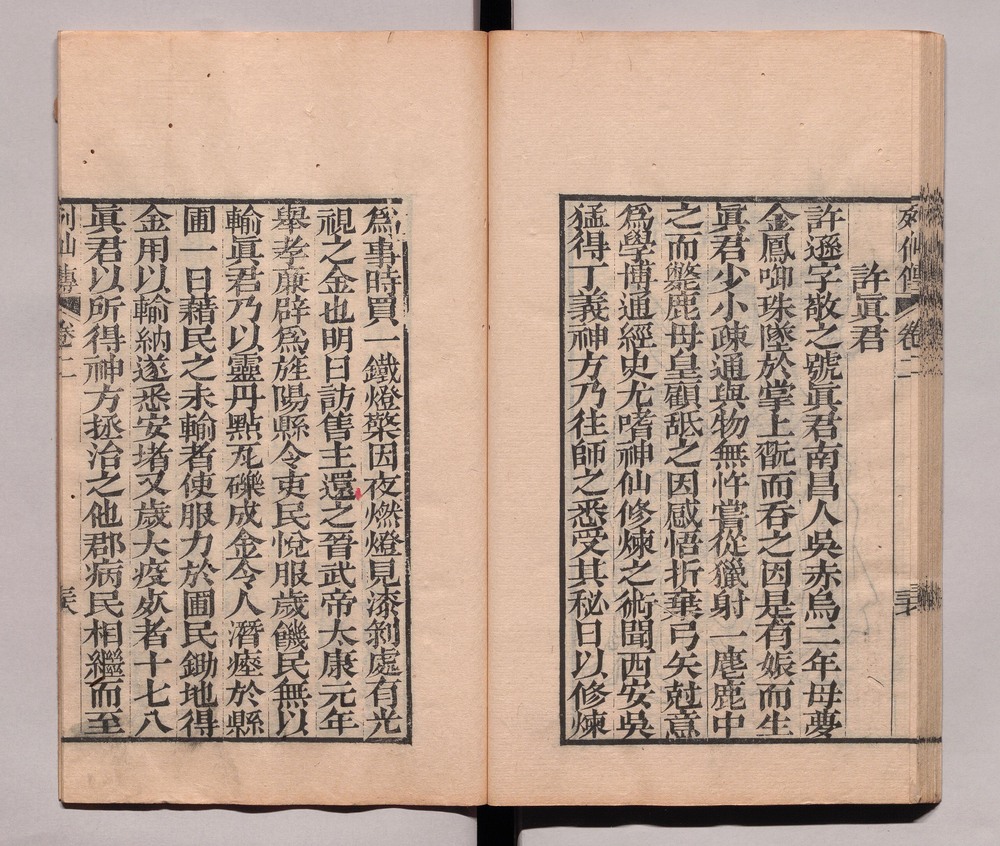 列仙傳
卷二
許眞君
許遜字敬之號眞君南昌人吳赤烏二年母夢
金鳳啣珠墜於掌上翫而吞之因是有娠而生
眞君少小疎通與物無忤嘗從獵射一麀鹿中
之而斃鹿母皇顧舐之因感悟折棄弓矢尅意
爲學博通經史尤嗜神仙修煉之術聞西安吳
猛得丁義神方乃往師之悉受其秘日以修煉
爲事時買一鐵燈檠因夜燃燈見漆剝處有光
視之金也明日訪售主還之晉武帝太康元年
舉孝廉辟爲旌陽縣令吏民悅服歲饑民無以
輸眞君乃以靈丹點瓦礫成金令人潛瘞於縣
圃一日藉民之未輸者使服力於圃民鋤地得
金用以輸納遂悉安堵又歲大疫死者十七八
眞君以所得神方拯治之他郡病民相繼而至
列仙傳
卷二